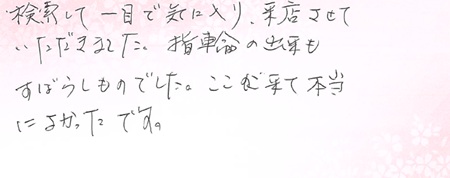 検索して一目で気に入り、来店させて
いただきました。指輪の出来も
すばらしものでした。ここが来て本当
によかったです。